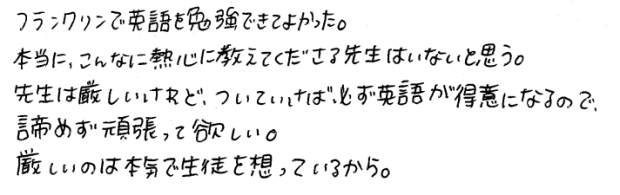 フランクリンで英語を勉強できてよかった。
本当に、こんなに熱心に教えてくださる先生はいないと思う。
先生は厳しいけれど、ついていけば必ず英語が得意になるので、
諦めず頑張って欲しい。
厳しいのは本気で生徒を想っているから。